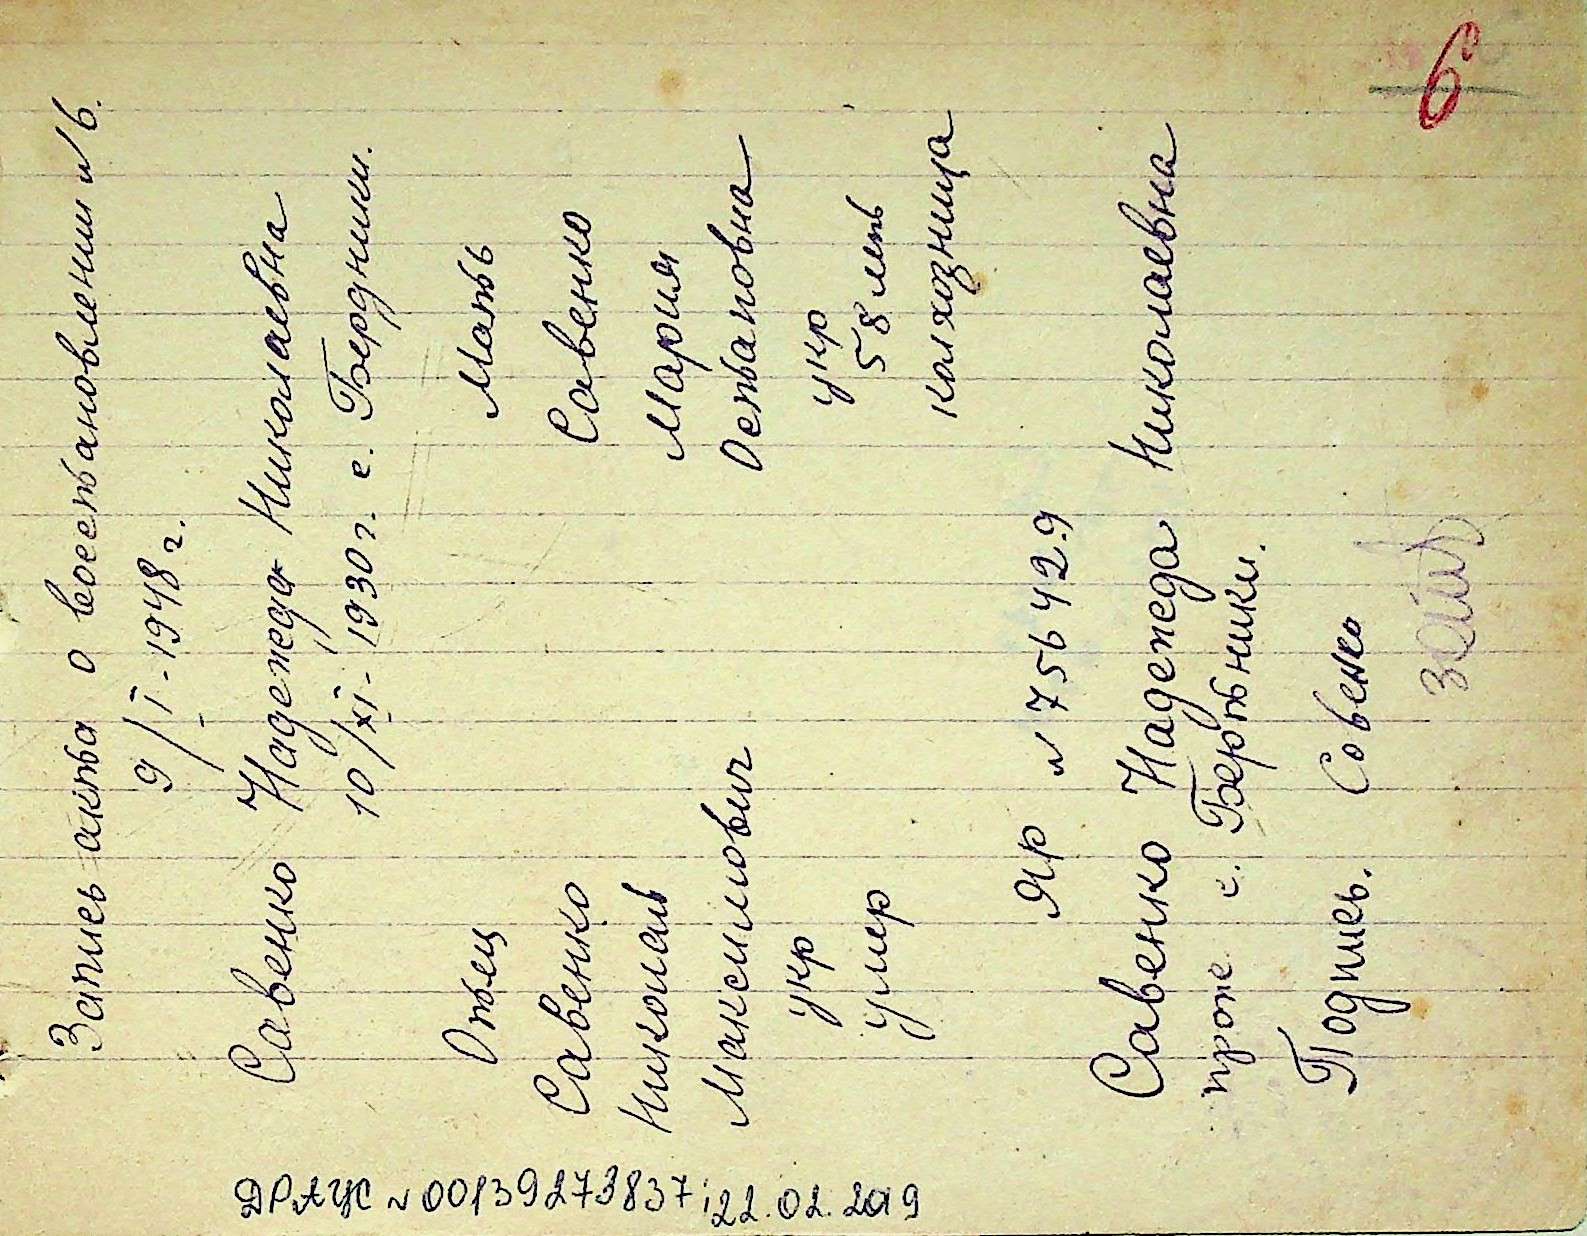 Запись акта о восстановлении №6.
9/I-1948 г.
Савенко Надежда Николаевна
10/XI-1930 г. с. Бердники.
Отец Мать
Савенко Савенко
Николай Мария
Максимович Остаповна
укр укр
умер 58 лет
колхозница
ЯР № 756429
Савенко Надежда Николаевна
прож. с. Бертники.
Подпись. Совенко
6
ДРАЦС № 00139273837; 22.02.2019